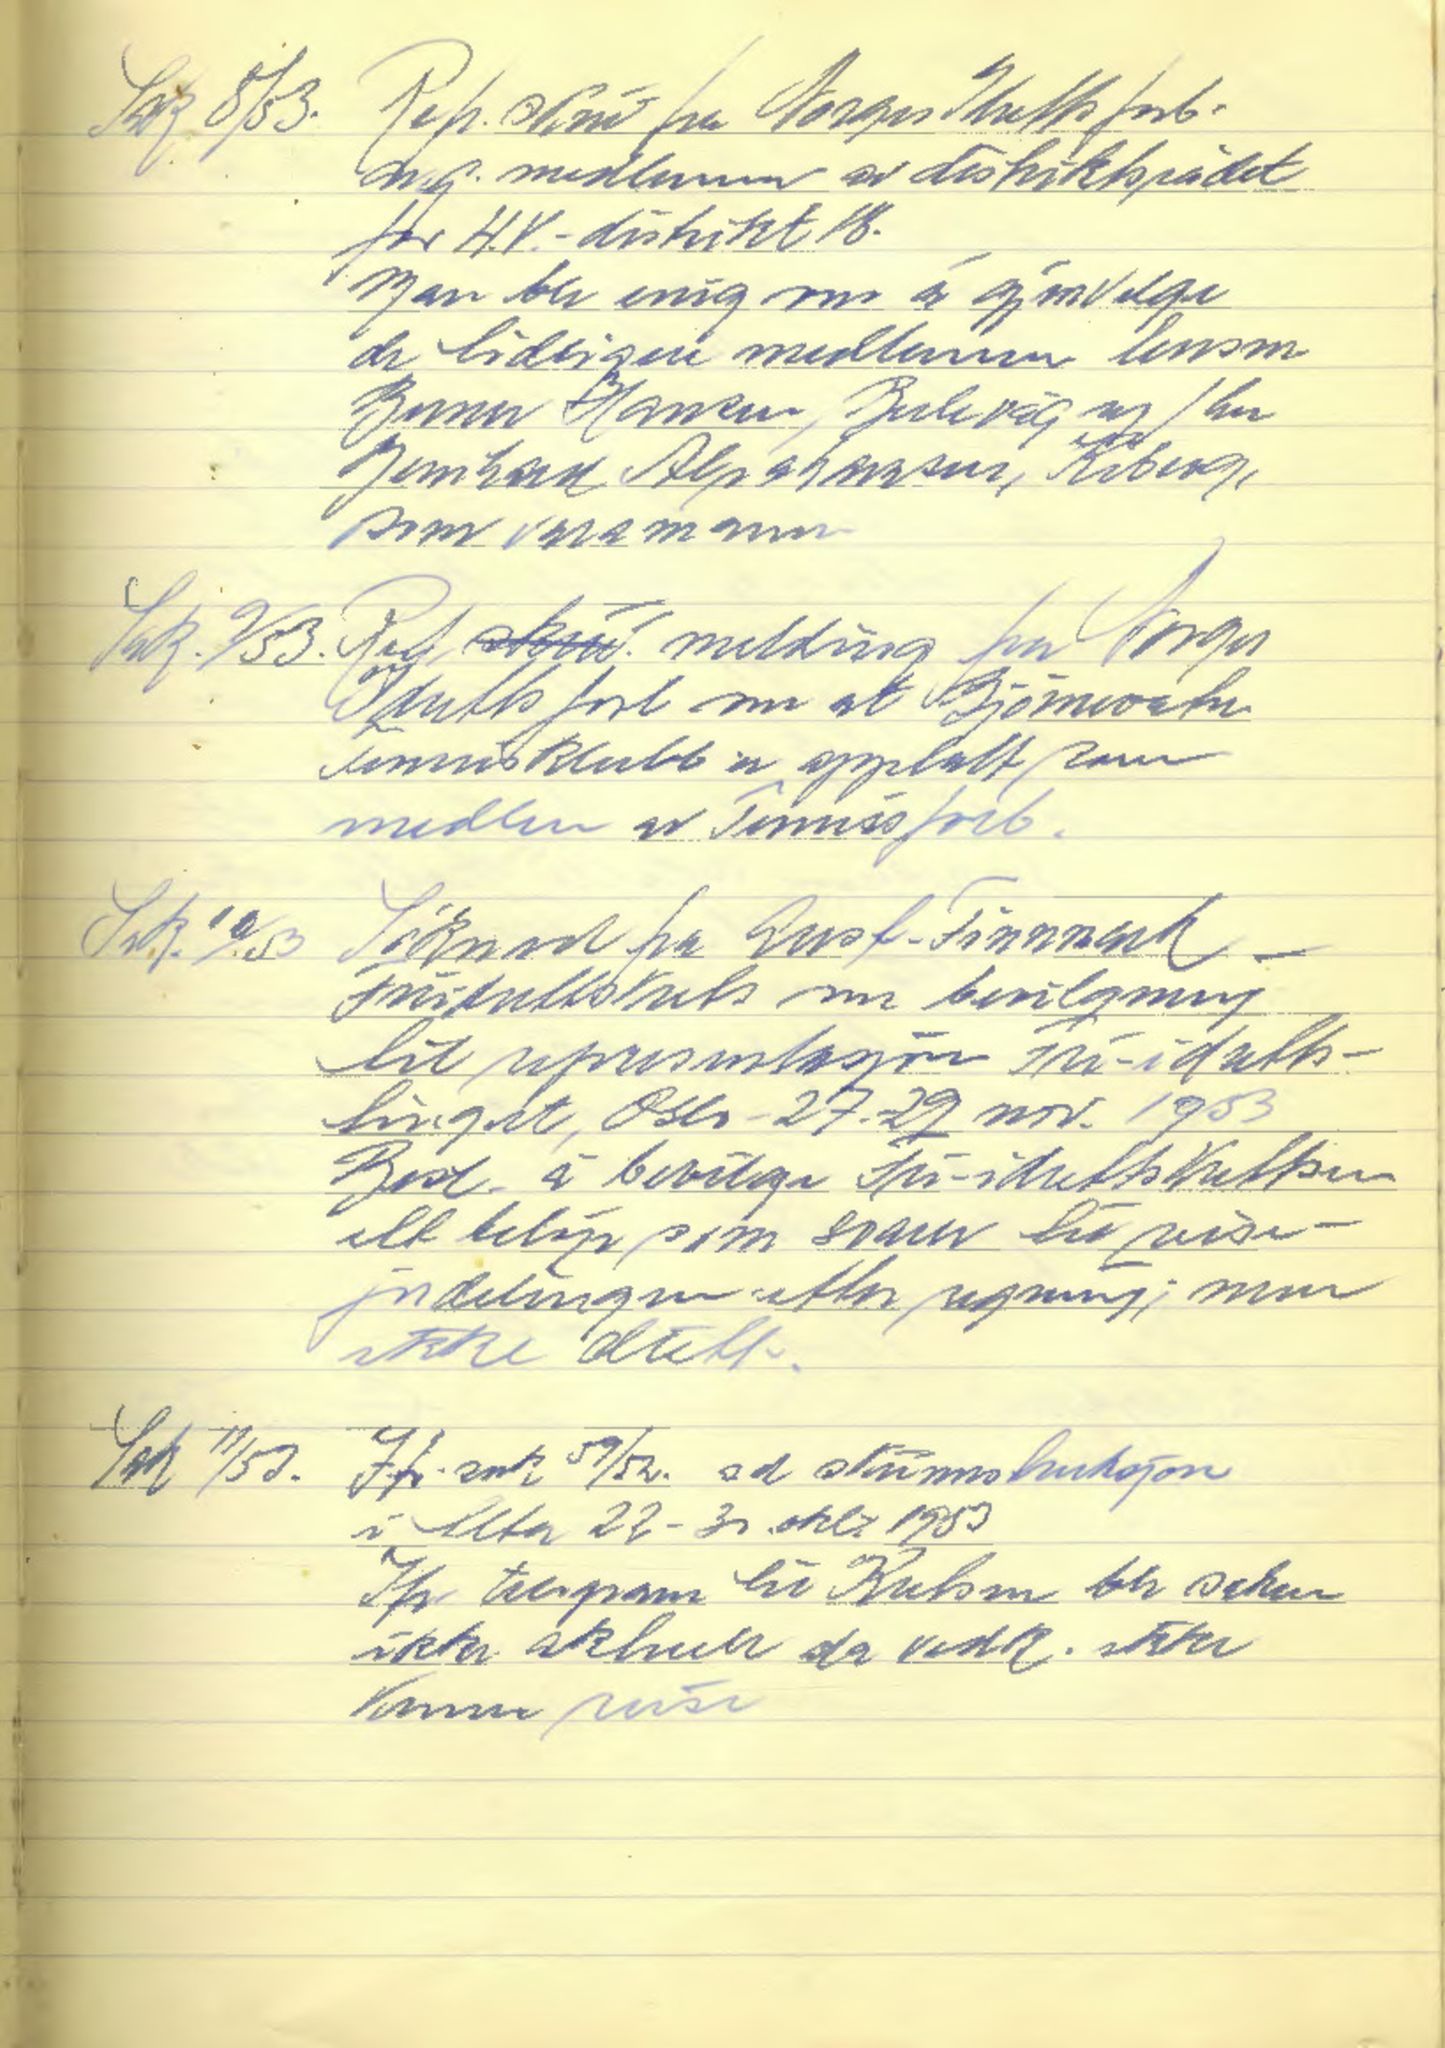 Sak 8/53. Ref. skriv fra Norges Idrettsforb.
ang. medlemmer av distriktsrådet
for H.V.-distrikt 18.
Man ble enig om å gjenvelge
de tidligere medlemmer lensm
Berner Hansen, Berlevåg og
Bernhard, Kiberg,
som varamann
Sak. 9/53. Ref. skriv. melding fra Norges
Idrettsforb om at Bjørnevatn
Tennisklubb er opptatt som
medlem av Tennisforb.
Sak. 10/53 Søknad fra Aust-Finnmark
Friidrettskrets om bevilgning
til representasjon Fri-idretts-
tinget, Oslo - 27-29 nov. 1953
Besl. å bevilge Fri-idrettskretsen
ett beløp som svarer til reise-
fordelingen etter regning; men
ikke diett.
Sak 11/53. Jfr. sak 59/52. ad skiinstruksjon
i Alta 22 - 31. okt. 1953
Jfr telegram til Kretsen ble saken
ikke aktuell da vedk. ikke
kunne reise